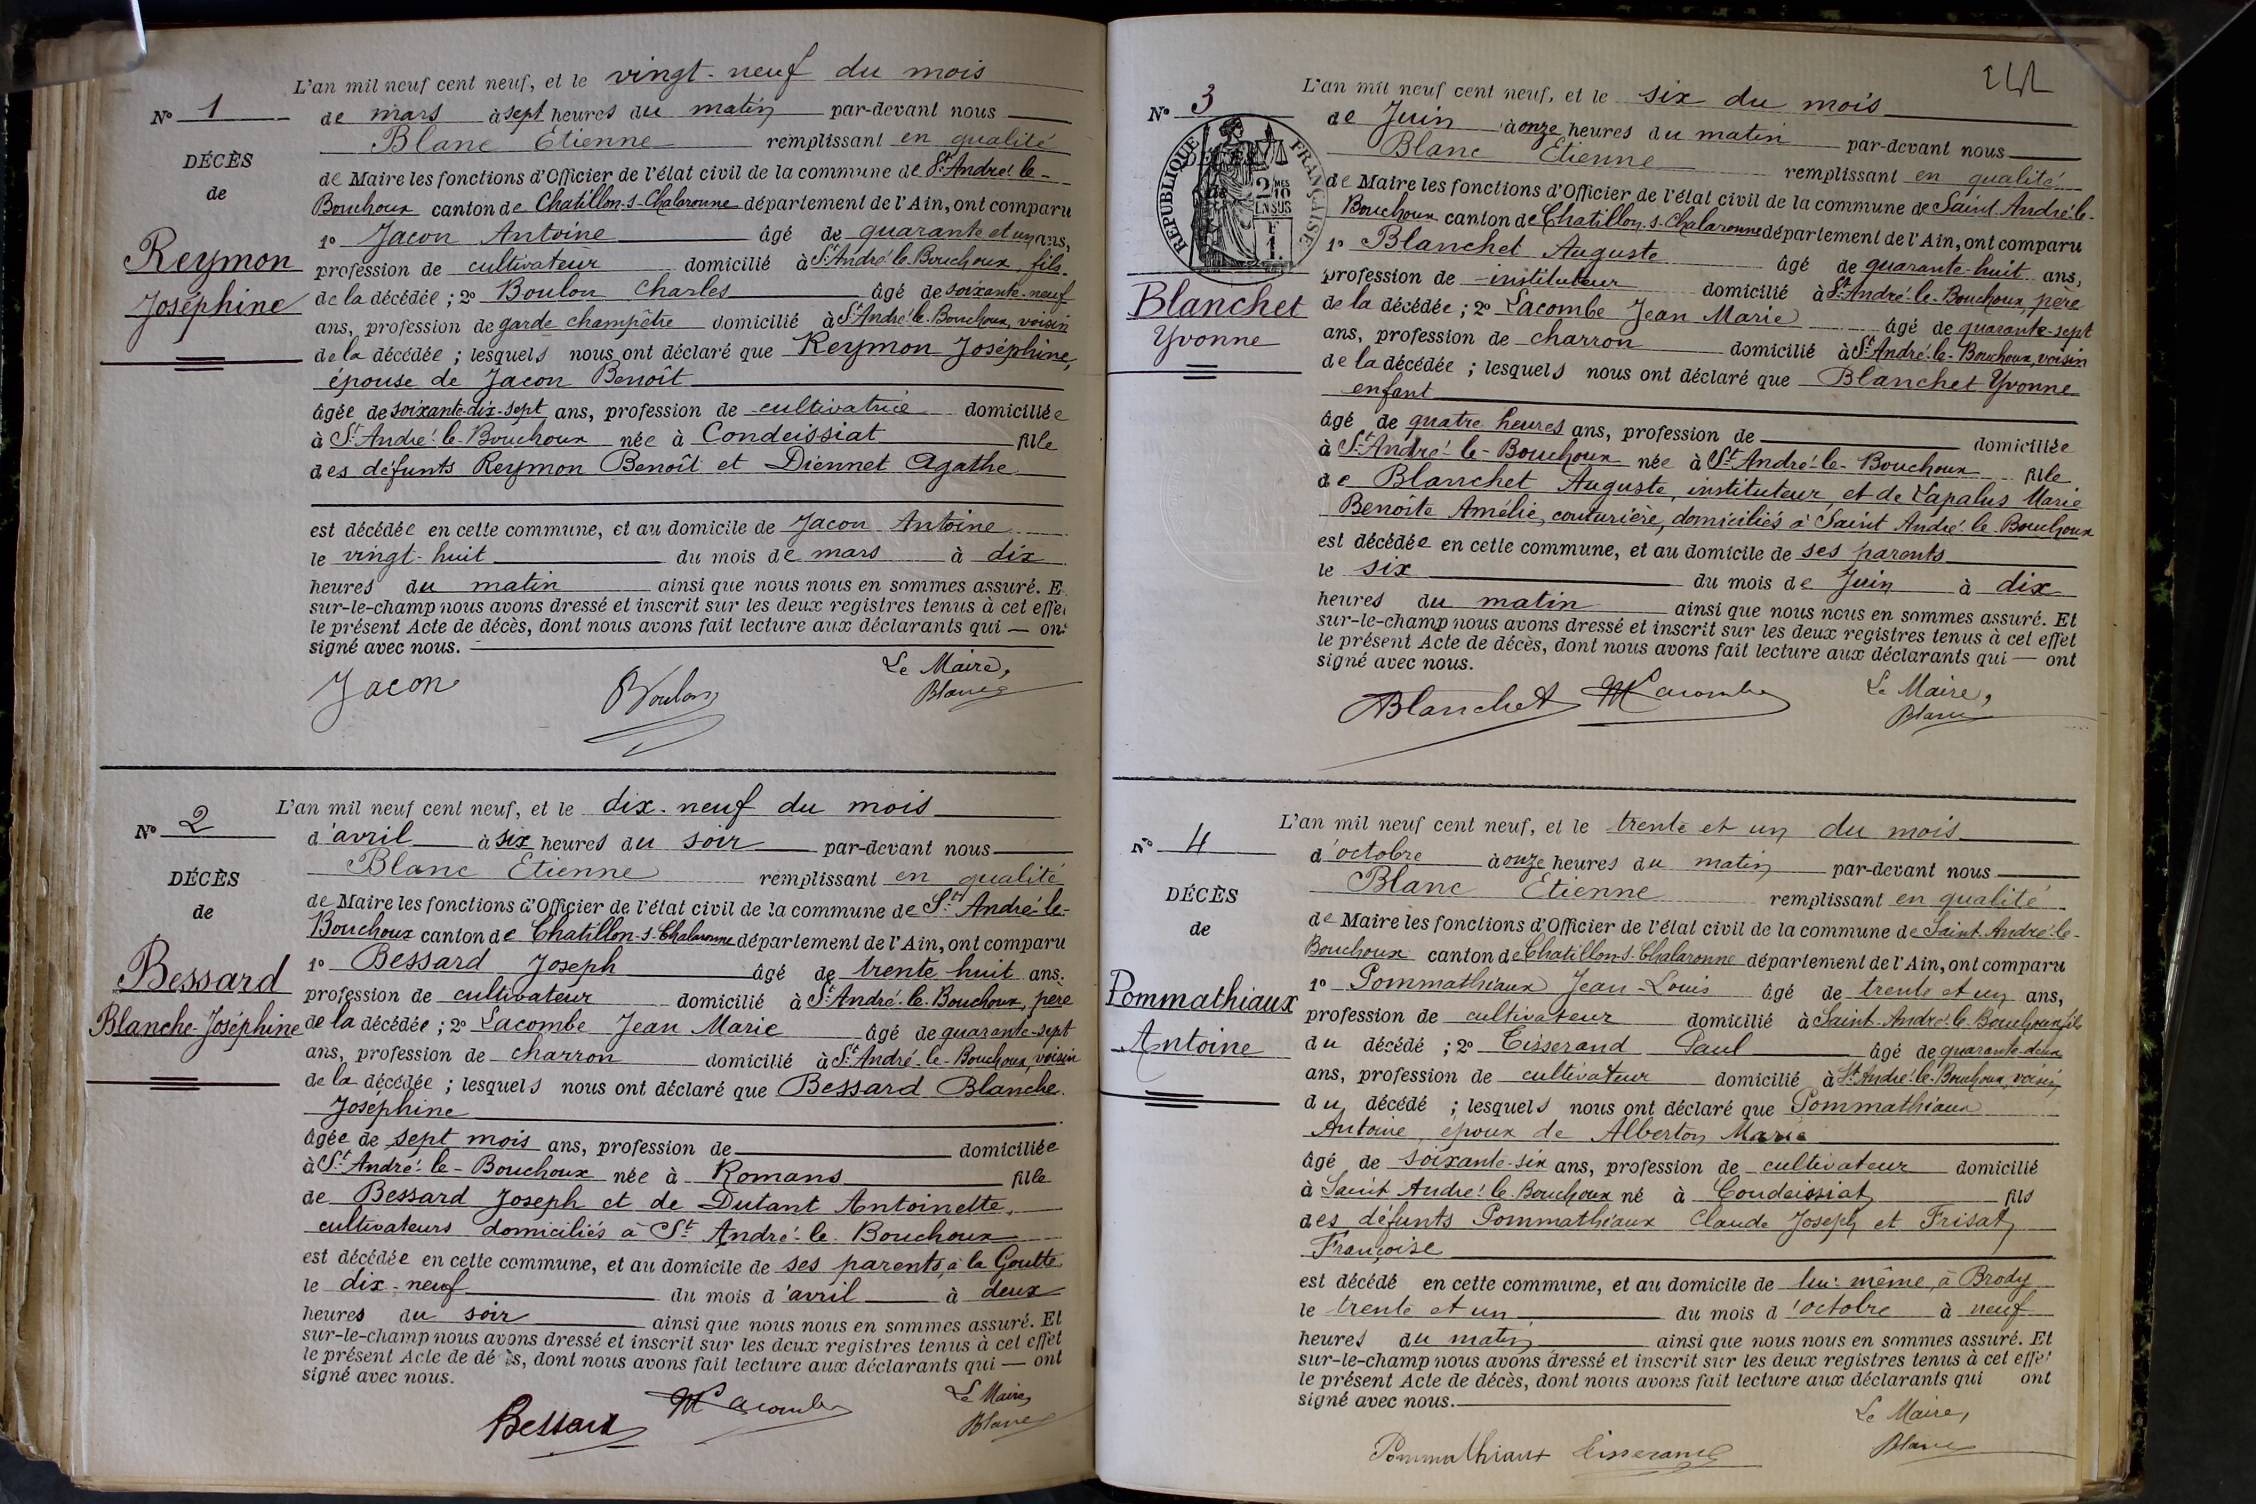 L'an mil neuf cent neuf, et le vingt-neuf du mois
N° 1
de mars à sept heures du matin par-devant nous
Blanc Etienne remplissant en qualité
DÉCÈS
de Maire les fonctions d'Officier de l'état civil de la commune de St André-le-
de
Bouchoux canton de Chatillon-s-Chalaronne département de l'Ain, ont comparu
1° Jacon Antoine âgé de quarante et un ans,
Reymon
profession de cultivateur domicilié à St André-le-Bouchoux, fils
Joséphine
de la décédée ; 2° Boulon Charles âgé de soixante-neuf
ans, profession de garde champêtre domicilié à St André-le-Bouchoux, voisin
de la décédée ; lesquels nous ont déclaré que Reymon Joséphine,
épouse de Jacon Benoît
âgée de soixante-dix-sept ans, profession de cultivatrice domiciliée
à St André-le-Bouchoux née à Condeissiat fille
des défunts Reymon Benoît et Diennet Agathe
est décédée en cette commune, et au domicile de Jacon Antoine
le vingt-huit du mois de mars à dix
heures du matin ainsi que nous nous en sommes assuré. E
sur-le-champ nous avons dressé et inscrit sur les deux registres tenus à cet effet
le présent Acte de décès, dont nous avons fait lecture aux déclarants qui — ont
signé avec nous.
Le Maire,
Jacon Boulon Blanc
L'an mil neuf cent neuf, et le dix-neuf du mois
N° 2
d'avril à six heures du soir par-devant nous
Blanc Etienne remplissant en qualité
DÉCÈS
de Maire les fonctions d'Officier de l'état civil de la commune de St André-le-
de
Bouchoux canton de Chatillon-s-Chalaronne département de l'Ain, ont comparu
1° Bessard Joseph âgé de trente huit ans.
Bessard
profession de cultivateur domicilié à St André-le-Bouchoux, père
Blanche-Joséphine
de la décédée ; 2° Lacombe Jean Marie âgé de quarante-sept
ans, profession de charron domicilié à St André-le-Bouchoux, voisin
de la décédée ; lesquels nous ont déclaré que Bessard Blanche
Joséphine
âgée de sept mois ans, profession de domiciliée
à St André-le-Bouchoux née à Romans fille
de Bessard Joseph et de Dutant Antoinette,
cultivateurs domiciliés à St André-le-Bouchoux
est décédée en cette commune, et au domicile de ses parents, à la Goutte
le dix-neuf du mois d'avril à deux
heures du soir ainsi que nous nous en sommes assuré. Et
sur-le-champ nous avons dressé et inscrit sur les deux registres tenus à cet effet
le présent Acte de décès, dont nous avons fait lecture aux déclarants qui — ont
signé avec nous.
Le Maire
Bessard Lacombe Blanc
L'an mil neuf cent neuf, et le six du mois
N° 3
de Juin à onze heures du matin par-devant nous
Blanc Etienne remplissant en qualité
RÉPUBLIQUE FRANÇAISE
2 MES 10
EN SUS
de Maire les fonctions d'Officier de l'état civil de la commune de Saint André-le-
Bouchoux canton de Chatillon-s-Chalaronne département de l'Ain, ont comparu
1° Blanchet Auguste âgé de quarante-huit ans,
profession de instituteur domicilié à St André-le-Bouchoux, père
Blanchet
Yvonne
de la décédée ; 2° Lacombe Jean Marie âgé de quarante-sept
ans, profession de charron domicilié à St André-le-Bouchoux, voisin
de la décédée ; lesquels nous ont déclaré que Blanchet Yvonne
enfant
âgé de quatre heures ans, profession de domiciliée
à St André-le-Bouchoux née à St André-le-Bouchoux fille
de Blanchet Auguste, instituteur, et de Lapalus Marie
Benoîte Amélie, couturière, domiciliés à Saint André-le-Bouchoux
est décédée en cette commune, et au domicile de ses parents
le six du mois de Juin à dix
heures du matin ainsi que nous nous en sommes assuré. Et
sur-le-champ nous avons dressé et inscrit sur les deux registres tenus à cet effet
le présent Acte de décès, dont nous avons fait lecture aux déclarants qui — ont
signé avec nous.
Le Maire,
Blanchet Lacombe Blanc
L'an mil neuf cent neuf, et le trente et un du mois
N° 4
d'octobre à onze heures du matin par-devant nous
Blanc Etienne remplissant en qualité
DÉCÈS
de Maire les fonctions d'Officier de l'état civil de la commune de Saint André-le-
de
Bouchoux canton de Chatillon-s-Chalaronne département de l'Ain, ont comparu
1° Pommathiaux Jean-Louis âgé de trente et un ans,
Pommathiaux
profession de cultivateur domicilié à Saint-André-le-Bouchoux, fils
Antoine
du décédé ; 2° Tisserand Paul âgé de quarante-deux
ans, profession de cultivateur domicilié à St André-le-Bouchoux, voisin
du décédé ; lesquels nous ont déclaré que Pommathiaux
Antoine, époux de Alberton Marie
âgé de soixante-six ans, profession de cultivateur domicilié
à Saint André-le-Bouchoux né à Condeissiat fils
des défunts Pommathiaux Claude Joseph et Frisat
Françoise
est décédé en cette commune, et au domicile de lui-même, à Brody
le trente et un du mois d'octobre à neuf
heures du matin ainsi que nous nous en sommes assuré. Et
sur-le-champ nous avons dressé et inscrit sur les deux registres tenus à cet effet
le présent Acte de décès, dont nous avons fait lecture aux déclarants qui ont
signé avec nous.
Le Maire,
Pommathiaux Tisserand Blanc